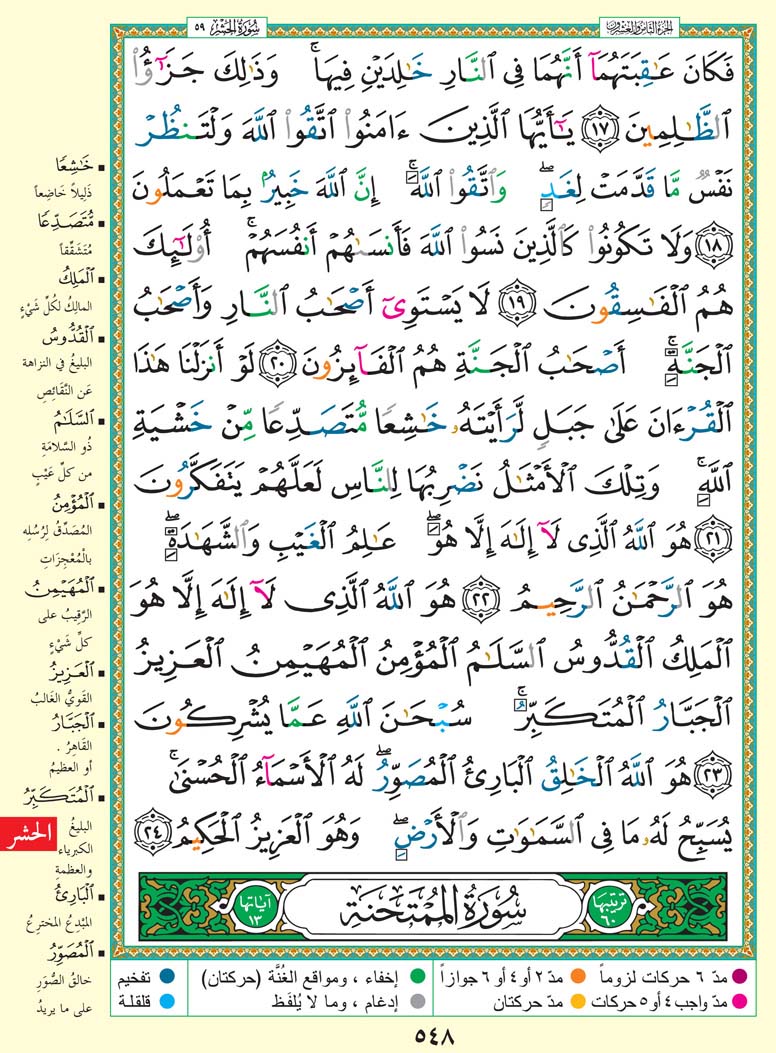 الجزء الثامن والعشرون
سُورَةُ الحَشْرِ ٥٩
فَكَانَ عَٰقِبَتَهُمَآ أَنَّهُمَا فِى ٱلنَّارِ خَٰلِدَيْنِ فِيهَا ۚ وَذَٰلِكَ جَزَٰٓؤُا۟
ٱلظَّٰلِمِينَ ١٧ يَٰٓأَيُّهَا ٱلَّذِينَ ءَامَنُوا۟ ٱتَّقُوا۟ ٱللَّهَ وَلْتَنظُرْ
نَفْسٌ مَّا قَدَّمَتْ لِغَدٍ ۖ وَٱتَّقُوا۟ ٱللَّهَ ۚ إِنَّ ٱللَّهَ خَبِيرٌۢ بِمَا تَعْمَلُونَ
١٨ وَلَا تَكُونُوا۟ كَٱلَّذِينَ نَسُوا۟ ٱللَّهَ فَأَنسَىٰهُمْ أَنفُسَهُمْ ۚ أُو۟لَٰٓئِكَ
هُمُ ٱلْفَٰسِقُونَ ١٩ لَا يَسْتَوِىٓ أَصْحَٰبُ ٱلنَّارِ وَأَصْحَٰبُ
ٱلْجَنَّةِ ۚ أَصْحَٰبُ ٱلْجَنَّةِ هُمُ ٱلْفَآئِزُونَ ٢٠ لَوْ أَنزَلْنَا هَٰذَا
ٱلْقُرْءَانَ عَلَىٰ جَبَلٍ لَّرَأَيْتَهُۥ خَٰشِعًا مُّتَصَدِّعًا مِّنْ خَشْيَةِ
ٱللَّهِ ۚ وَتِلْكَ ٱلْأَمْثَٰلُ نَضْرِبُهَا لِلنَّاسِ لَعَلَّهُمْ يَتَفَكَّرُونَ
٢١ هُوَ ٱللَّهُ ٱلَّذِى لَآ إِلَٰهَ إِلَّا هُوَ ۖ عَٰلِمُ ٱلْغَيْبِ وَٱلشَّهَٰدَةِ ۖ
هُوَ ٱلرَّحْمَٰنُ ٱلرَّحِيمُ ٢٢ هُوَ ٱللَّهُ ٱلَّذِى لَآ إِلَٰهَ إِلَّا هُوَ
ٱلْمَلِكُ ٱلْقُدُّوسُ ٱلسَّلَٰمُ ٱلْمُؤْمِنُ ٱلْمُهَيْمِنُ ٱلْعَزِيزُ
ٱلْجَبَّارُ ٱلْمُتَكَبِّرُ ۚ سُبْحَٰنَ ٱللَّهِ عَمَّا يُشْرِكُونَ
٢٣ هُوَ ٱللَّهُ ٱلْخَٰلِقُ ٱلْبَارِئُ ٱلْمُصَوِّرُ ۖ لَهُ ٱلْأَسْمَآءُ ٱلْحُسْنَىٰ ۚ
يُسَبِّحُ لَهُۥ مَا فِى ٱلسَّمَٰوَٰتِ وَٱلْأَرْضِ ۖ وَهُوَ ٱلْعَزِيزُ ٱلْحَكِيمُ ٢٤
ترتيبها ٦٠
سُورَةُ المُمْتَحنَة
آياتها ١٣
خَٰشِعًا
ذَلِيلاً خَاضِعاً
مُّتَصَدِّعًا
مُتَشَقِّقاً
ٱلْمَلِكُ
المالِك لكُلِّ شَيْءٍ
ٱلْقُدُّوسُ
البليغُ في النزاهة
عَن النَّقَائِصِ
ٱلسَّلَٰمُ
ذُو السَّلامَةِ
من كلِّ عَيْبٍ
ٱلْمُؤْمِنُ
المُصَدِّق لِرُسُلِه
بالْمُعْجِزاتِ
ٱلْمُهَيْمِنُ
الرَّقيبُ على
كلِّ شَيْءٍ
ٱلْعَزِيزُ
القَويُّ الغَالبُ
ٱلْجَبَّارُ
القَاهِرُ .
أو العظيمُ
ٱلْمُتَكَبِّرُ
البليغُ
الكبرياء
والعظمةِ
ٱلْبَارِئُ
المُبْدِعُ المخترعُ
ٱلْمُصَوِّرُ
خالقُ الصُّوَرِ
على ما يريدُ
الحشر
مدّ ٦ حركات لزوماً
مدّ ٢ أو ٤ أو ٦ جوازاً
إخفاء ، ومواقع الغُنَّة (حركتان)
تفخيم
مدّ واجب ٤ أو ٥ حركات
مدّ حركتان
إدغام ، وما لا يُلفَظ
قلقلة
٥٤٨